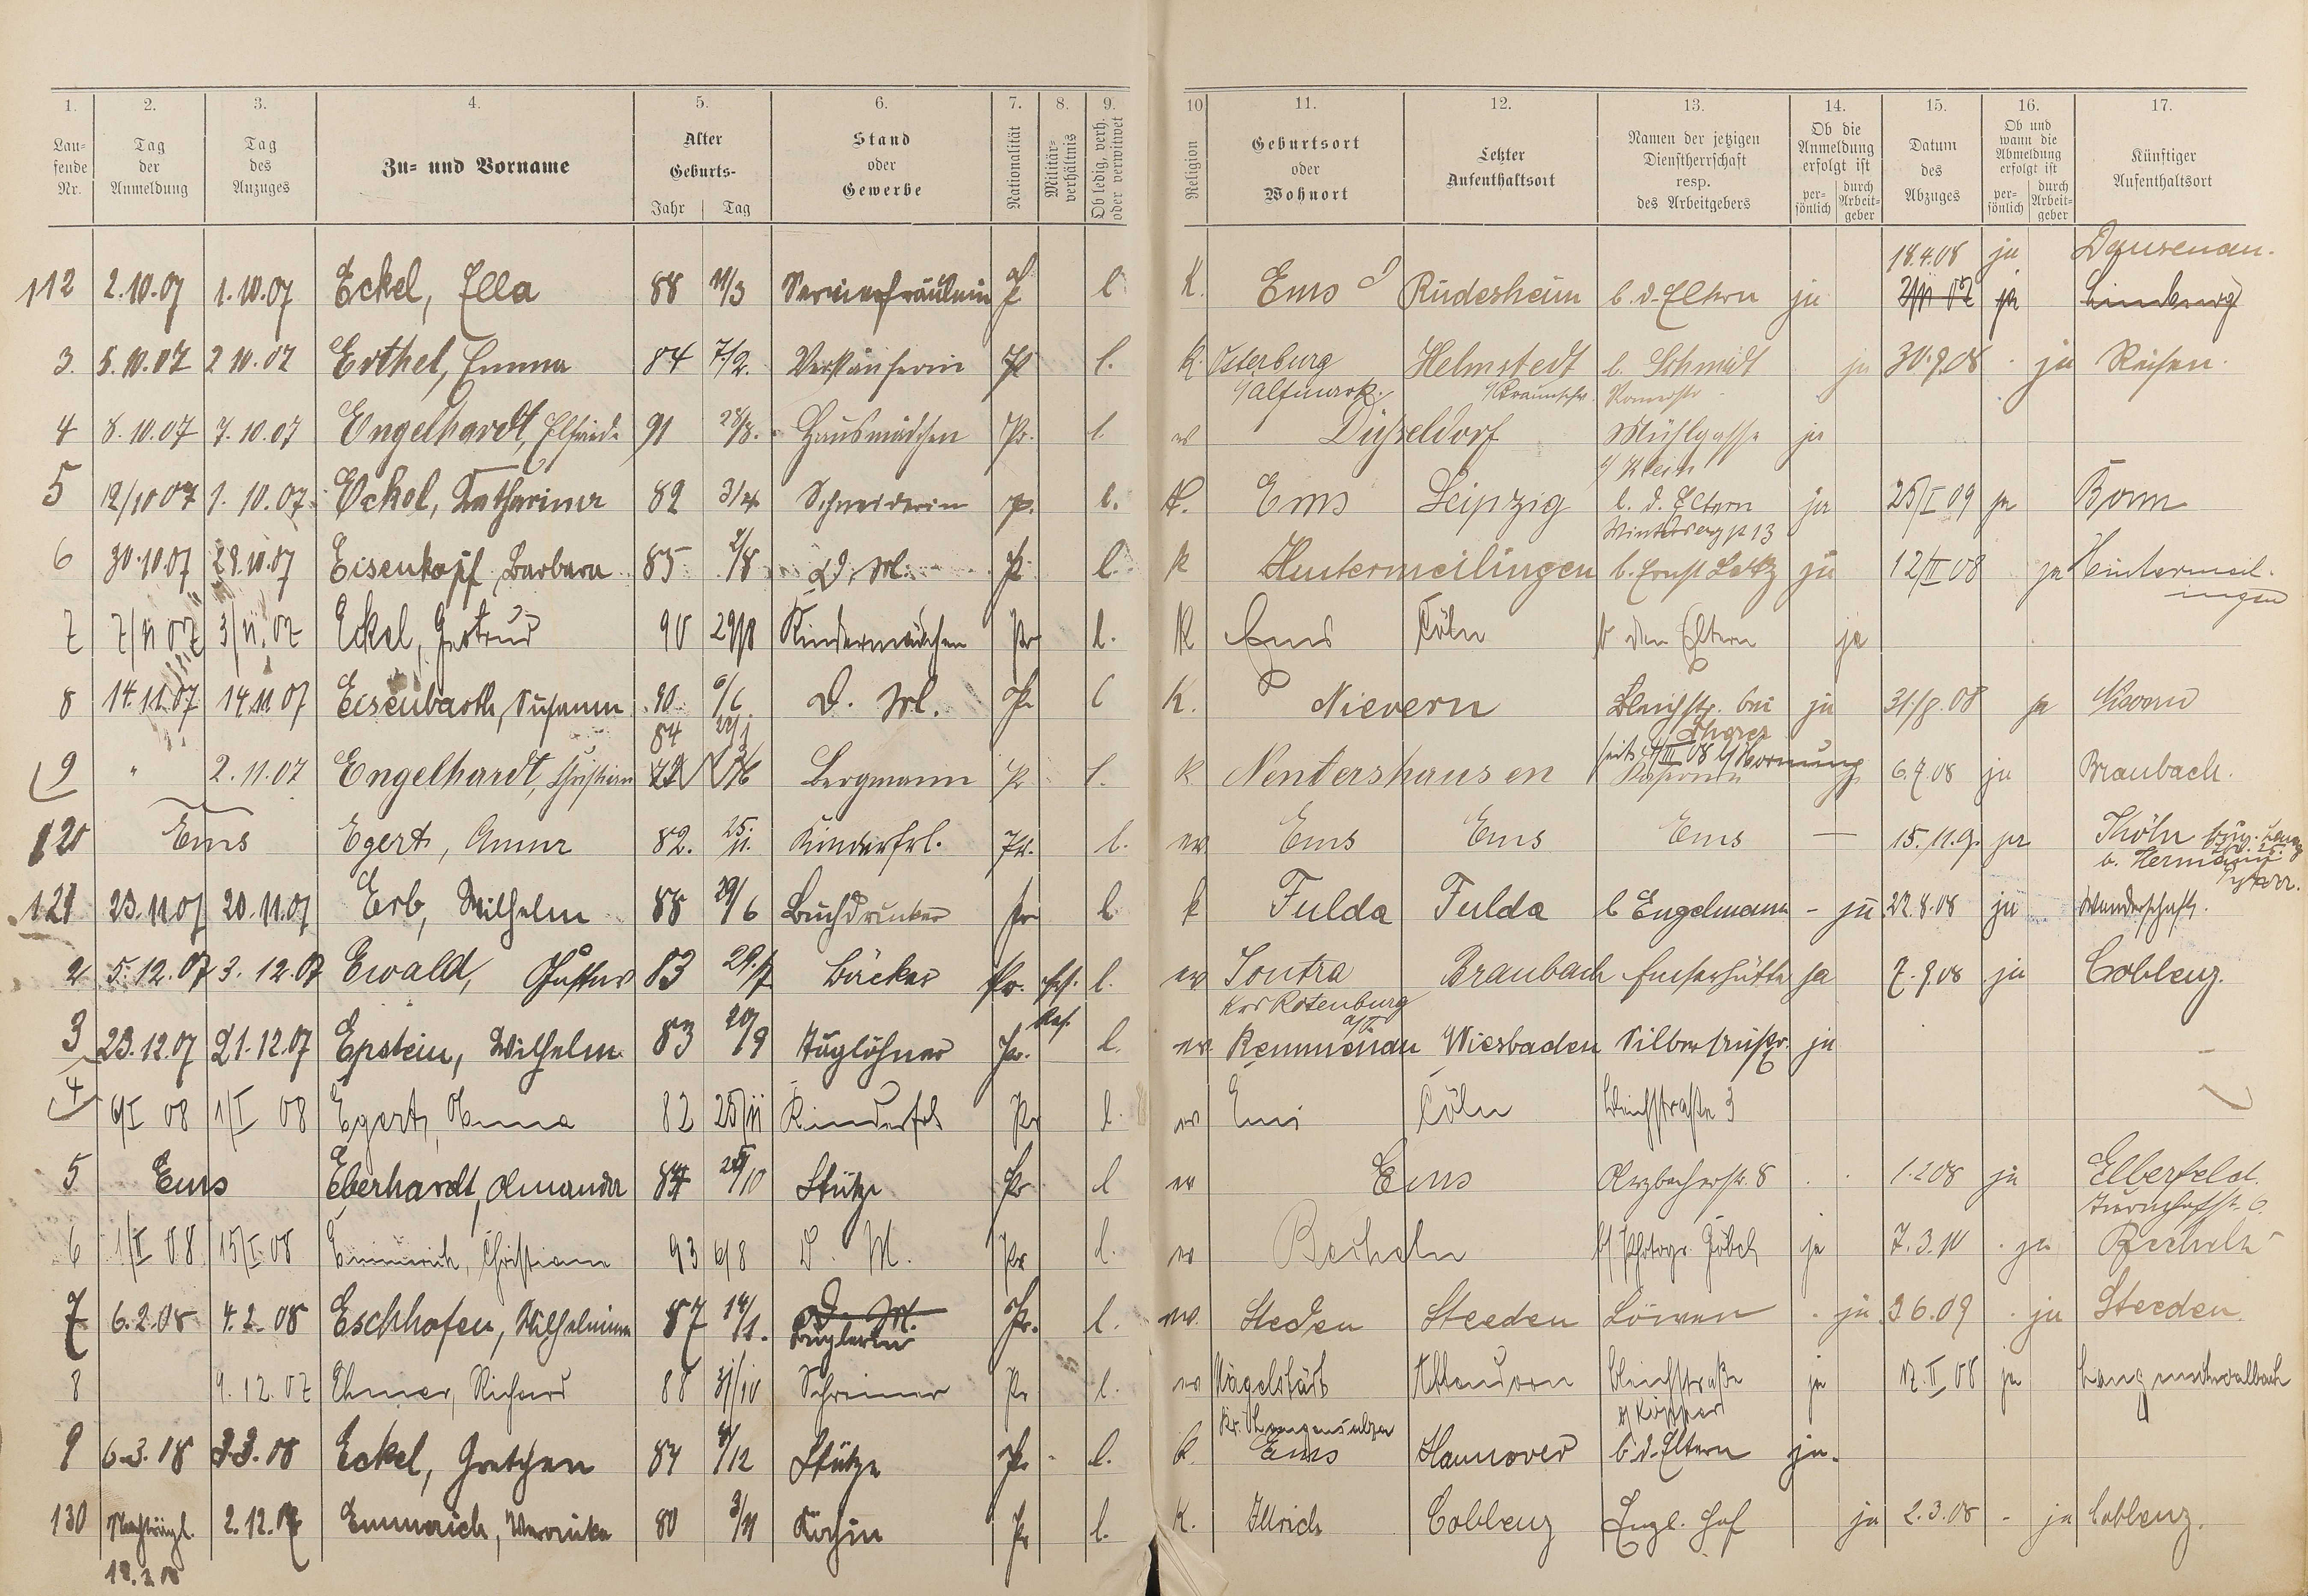 1. 2. 3. 4. 5. 6. 7. 8. 9. 10 11. 12. 13. 14. 15. 16. 17.
Laufende Nr. Tag der Anmeldung Tag des Anzuges Zu- und Vorname Alter Geburts- Jahr Tag Stand oder Gewerbe Nationalität Militärverhältnis Ob ledig, verh. oder verwitwet Religion Geburtsort oder Wohnort Letzter Aufenthaltsort Namen der jetzigen Dienstherrschaft resp. des Arbeitgebers Ob die Anmeldung erfolgt ist persönlich durch Arbeitgeber Datum des Abzuges Ob und wann die Abmeldung erfolgt ist persönlich durch Arbeitgeber Künftiger Aufenthaltsort
18.4.08 ja Dausenau.
112 2.10.07 1.10.07 Eckel, Ella 88 Servierfräulein l K. Ems Rüdesheim b. d. Eltern ja ja Limburg
3. 5.10.07 2 10.07 Erthel, Emma 84 7/2. Verkäuferin Pr l. K. Osterburg Helmstedt b. Schmidt ja 30.9.08 ja Reisen.
i/Altmark. i/Braunschw. Römerstr
4 8.10.07 7.10.07 Engelhardt, Elfriede 91 28/8. Hausmädchen Pr. l. ev Düsseldorf Mühlgasse ja
b/ Klein
5 12/10 07 1.10.07. Eckel, Katharina 82 3/4 Schneiderin Pr. l. K. Ems Leipzig b. d. Eltern ja 25/I 09 ja Bonn
Wintersberg 13
6 30.10.07 29.10.07 Eisenkopf Barbara 85 2/8 D. M. Pr l. K Hintermeilingen b. Ernst ja 12/II 08 ja Hintermeil-
ingen
7 7/11 07 3/11.07 Eckel, Gertrud 90 29/8 Kindermädchen Pr l. K Ems Cöln b den Eltern ja
8 14.11.07 14.11.07 Eisenbarth, Susanna 90. 6/6 D. M. Pr l K. Nievern Bleichstr. bei ja 31/8.08 ja Nievern
84
9 " 2.11.07 Engelhardt, Christian Bergmann Pr l. K Nentershausen 6.7.08 ja Braubach.
120 Ems Egert, Anna 82. 25./11. Kinderfrl. Pr. l. ev Ems Ems Ems — 15.11.07 ja Köln
b. Hermann
121 23.11.07 20.11.07 Erb, Wilhelm 88 29/6 Buchdrucker Pr l k Fulda Fulda b Engelmann - ja 22.8.08 ja Wanderschaft.
2 5.12.07 3.12.07 Ewald, Gustav 83 29./7 Bäcker Pr. l. ev Sontra Braubach Emserhütte ja 7.9.08 ja Coblenz.
Krs Rotenburg
3 23.12.07 21.12.07 Epstein, Wilhelm 83 20/9 Taglöhner Pr. Res. l. ev. Kemmenau Wiesbaden Silberaustr. ja
4 6/I 08 1/I 08 Egert, Anna 82 25/11 Kinderfrl Pr l. ev Ems Cöln Bleichstraße 3
5 Ems Eberhardt, Amanda 84 /10 Stütze Pr l ev Ems Arzbacherstr. 8 1.2.08 ja Elberfeld.
6 1/II 08 15/I 08 Emmerich, Christiane 93 6/8 D. M. Pr l. ev Becheln b/ Photogr. Göbel ja 7.3.10 ja Becheln
7 6.2.08 4.2.08 Eschhofen, Wilhelmine 87 14/11. D. M. Pr. l. ev. Steeden Steeden Löwen ja 3.6.09 ja Steeden.
Büglerin
8 9.12.07 Ehmer, Richard 88 31/10 Schreiner Pr l. ev Nägelstädt Attendorn Bleichstraße ja 17.II 08 ja Langenschwalbach
Kr. Langensalza
9 6.3.08 3.3.08 Eckel, Gretchen 84 /12 Stütze Pr l. k. Ems Hannover b. d. Eltern ja.
130 Nachträgl. 2.12.07 Emmerich, Veronika 80 3/11 Köchin Pr l. K. Coblenz Engl. Hof ja 2.3.08 - ja Coblenz.